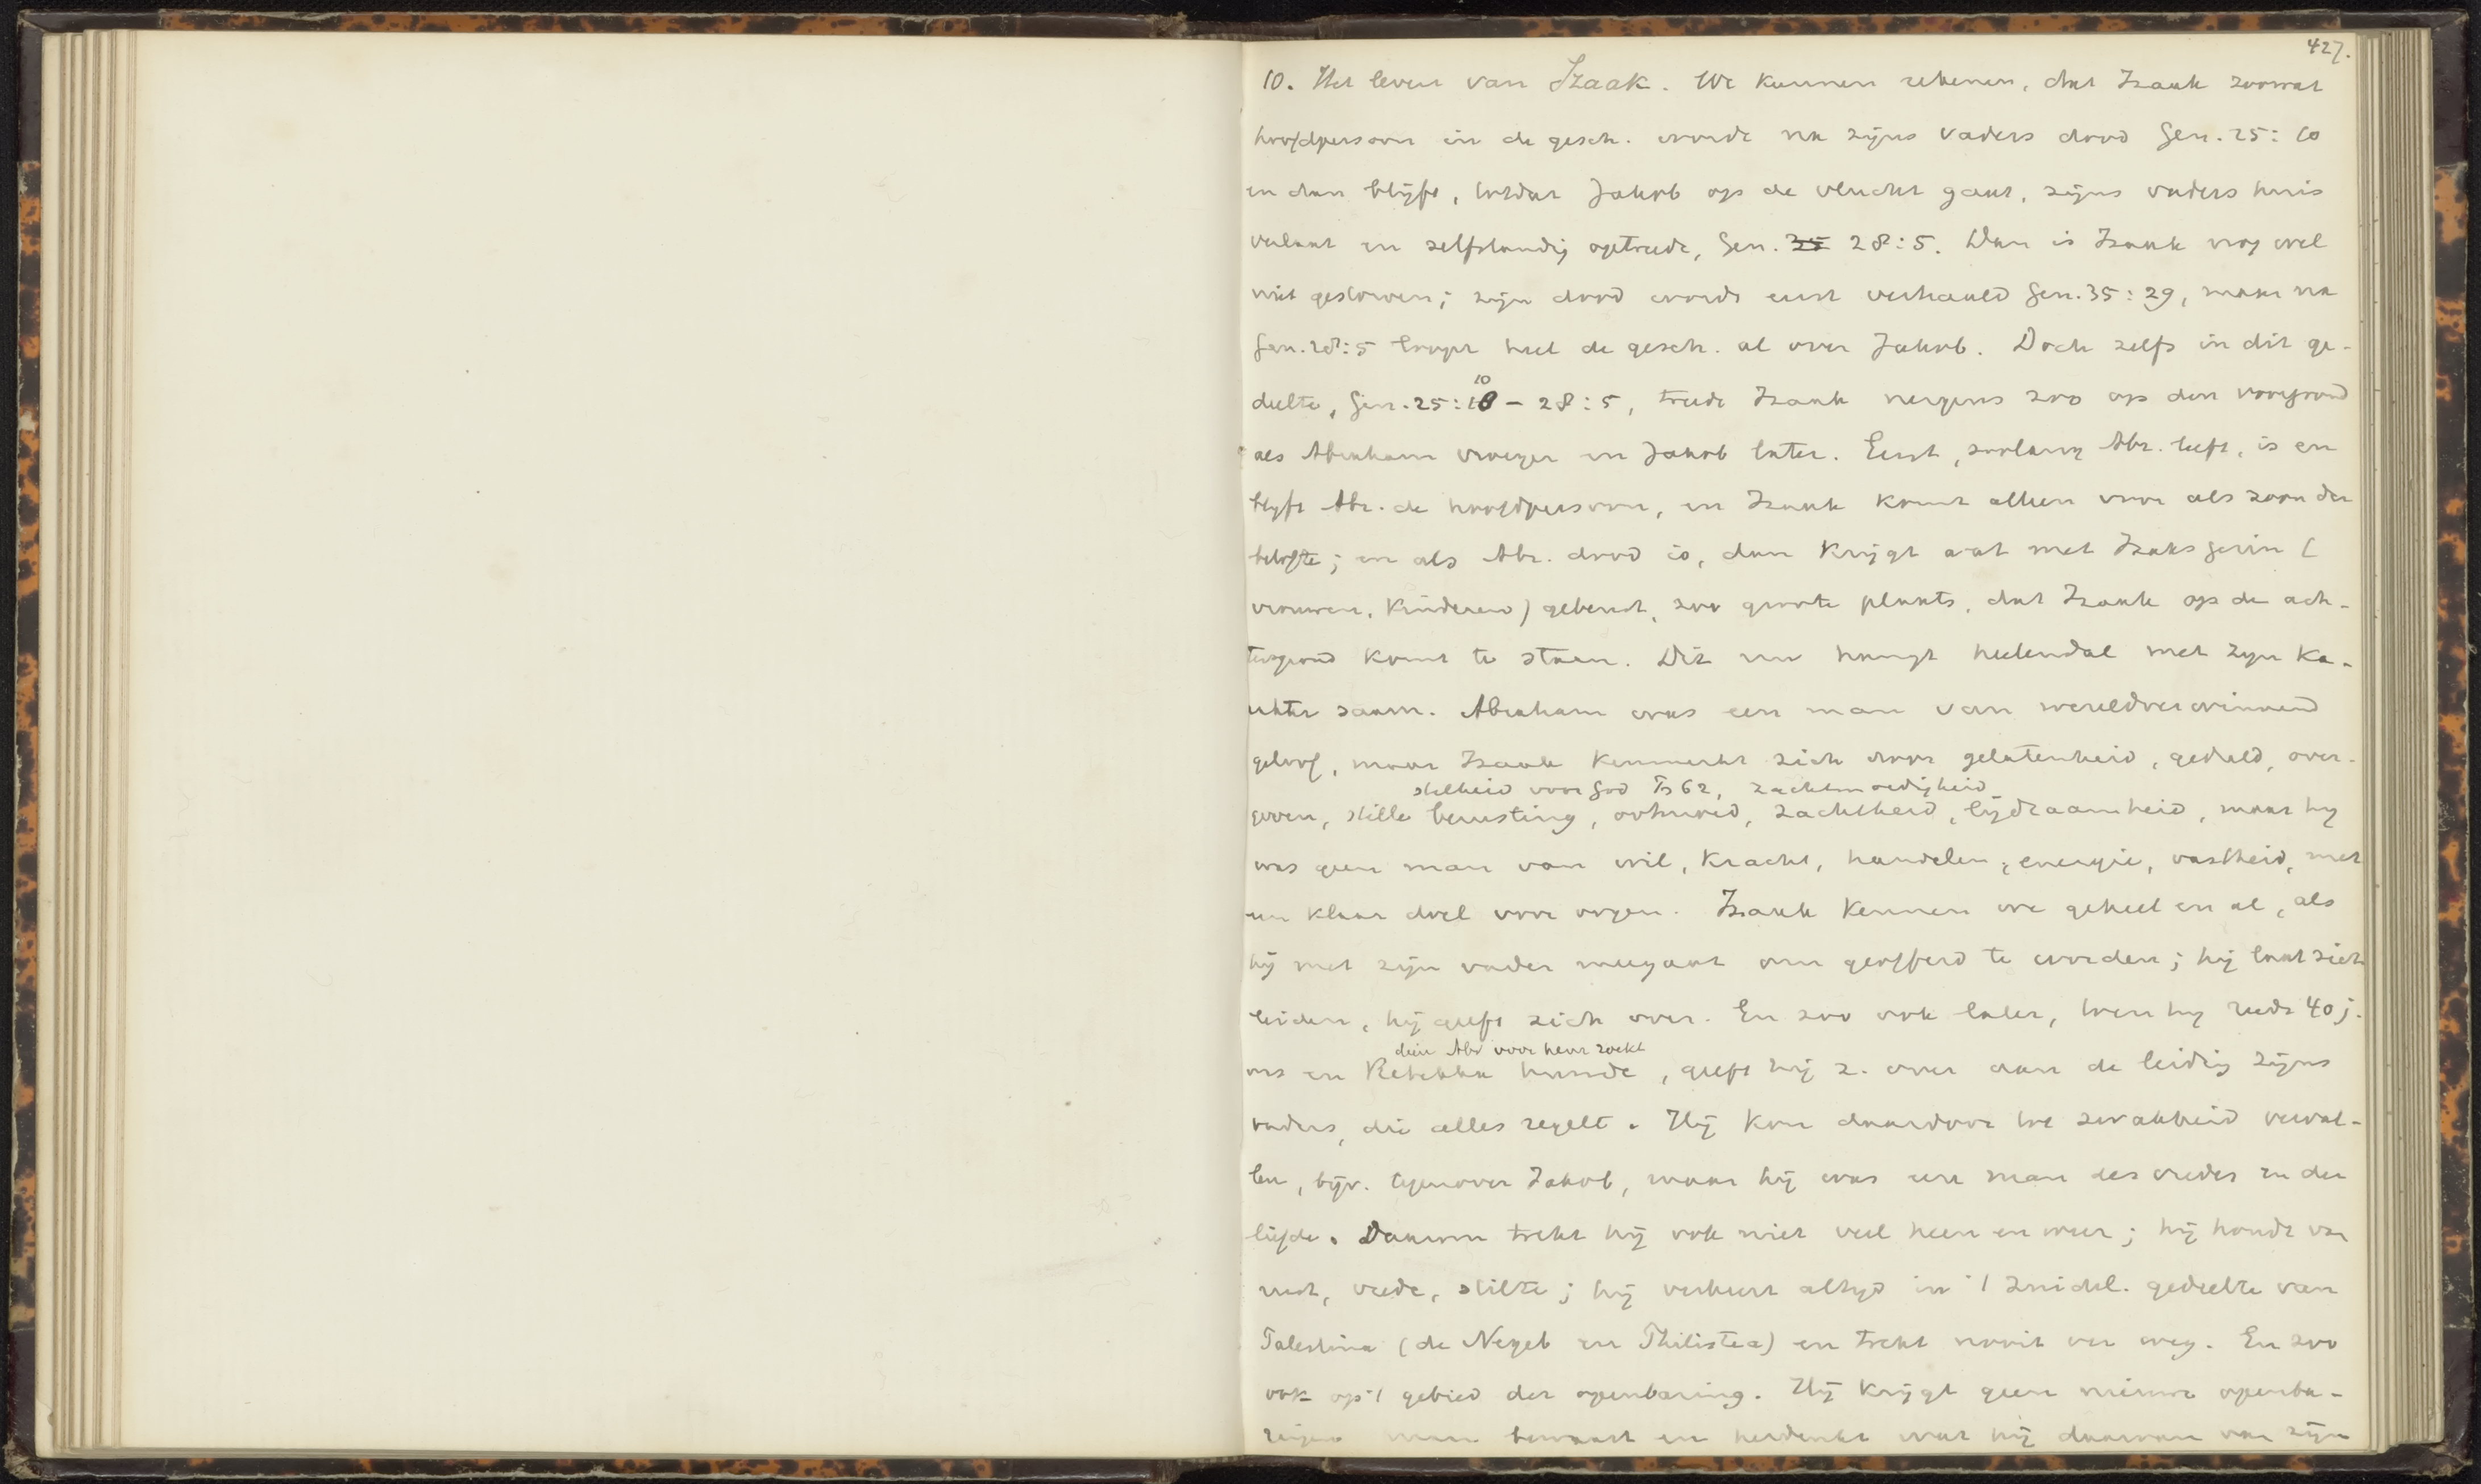 427.
10. Het leven van Izaak. We kunnen rekenen, dat Izaak zoowat
hoofdpersoon in de gesch. wordt na zijns vaders dood Gen. 25:10
en dan blijft, totdat Jakob op de vlucht gaat, zijns vaders huis
verlaat en zelfstandig optreedt, Gen. 35 28:5. Dan is Izaak nog wel
niet gestorven; zijn dood wordt eerst verhaald Gen. 35:29, maar na
Gen. 28:5 loopt heel de gesch. al over Jakob. Doch zelfs in dit ge-
deelte, Gen. 25:10 – 28:5, treedt Izaak nergens zoo op den voorgrond
als Abraham vroeger en Jakob later. Eerst, zoolang Abr. leeft, is en
blijft Abr. de hoofdpersoon, en Izaak komt alleen voor als zoon der
belofte; en als Abr. dood is, dan krijgt wat met Izaks gezin (
vrouwen, kinderen) gebeurt, zoo groote plaats, dat Izaak op de ach-
tergrond komt te staan. Dit nu hangt heelendal met zijn ka-
rakter saam. Abraham was een man van wereldverwinnend
geloof, maar Izaak kenmerkt zich door gelatenheid, geduld, over-
stilheid voor God Ps 62, zachtmoedigheid
geven, stille berusting, ootmoed, zachtheid, lijdzaamheid, maar hij
was geen man van wil, kracht, handelen, energie, vastheid, met
een klaar doel voor oogen. Izaak kennen we geheel en al, als
hij met zijn vader meegaat om geofferd te worden; hij laat zich
leiden, hij geeft zich over. En zoo ook later, toen hij reeds 40 j.
dien Abr voor hem zoekt
was en Rebekka huwde, geeft hij z. over aan de leidig zijns
vaders, die alles regelt. Hij kon daardoor tot zwakheid verval-
len, bijv. tegenover Jakob, maar hij was een man des vredes en der
liefde. Daarom trekt hij ook niet veel heen en weer; hij houdt van
rust, vrede, stilte; hij verkeert altijd in 't zuidel. gedeelte van
Palestina (de Negeb en Philistea) en trekt nooit ver weg. En zoo
ook op 't gebied der openbaring. Hij krijgt geen nieuwe openba-
ringen maar bewaart en herdenkt wat hij daarvan van zijn